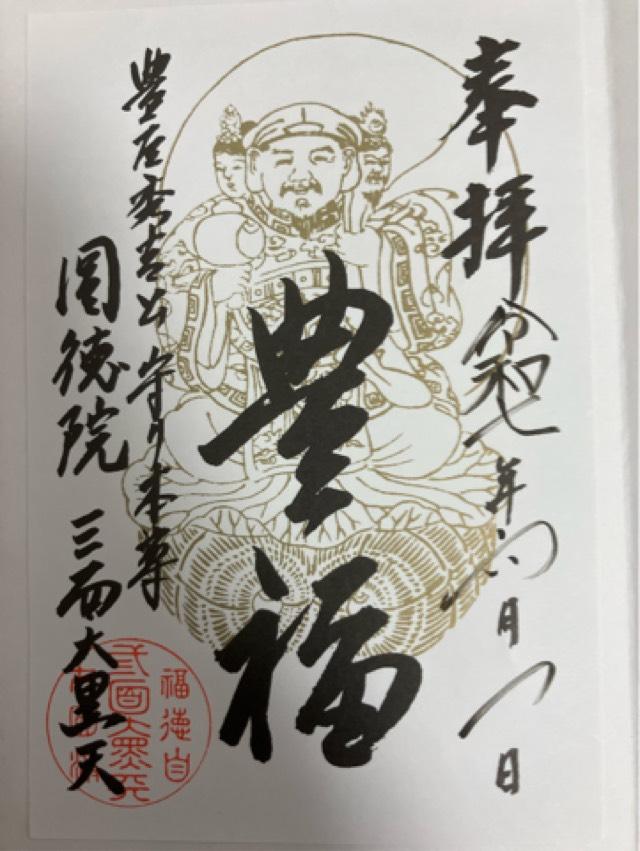 奉拝 令和七年六月八日
豊福
豊臣秀吉公 守り本尊
圓徳院 三面大黒天
福徳自
三面大黒天